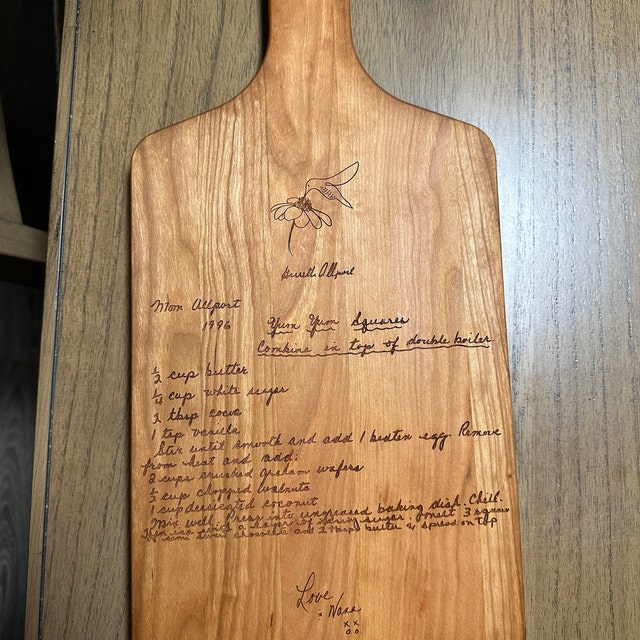 Allport
Mom Allport
1996
Yum Yum Squares
Combine in top of double boiler
½ cup butter
¼ cup white sugar
2 tbsp cocoa
1 tsp vanilla
Stir until smooth and add 1 beaten egg. Remove
from heat and add:
2 cups crushed graham wafers
½ cup chopped walnuts
1 cup desicated coconut
Mix well. Press into ungreased baking dish. Chill.
Then ice with a layer of icing sugar. Melt 3 squares
semi sweet chocolate and 1 tbsp butter & spread on top
Love
Nana
xx
oo